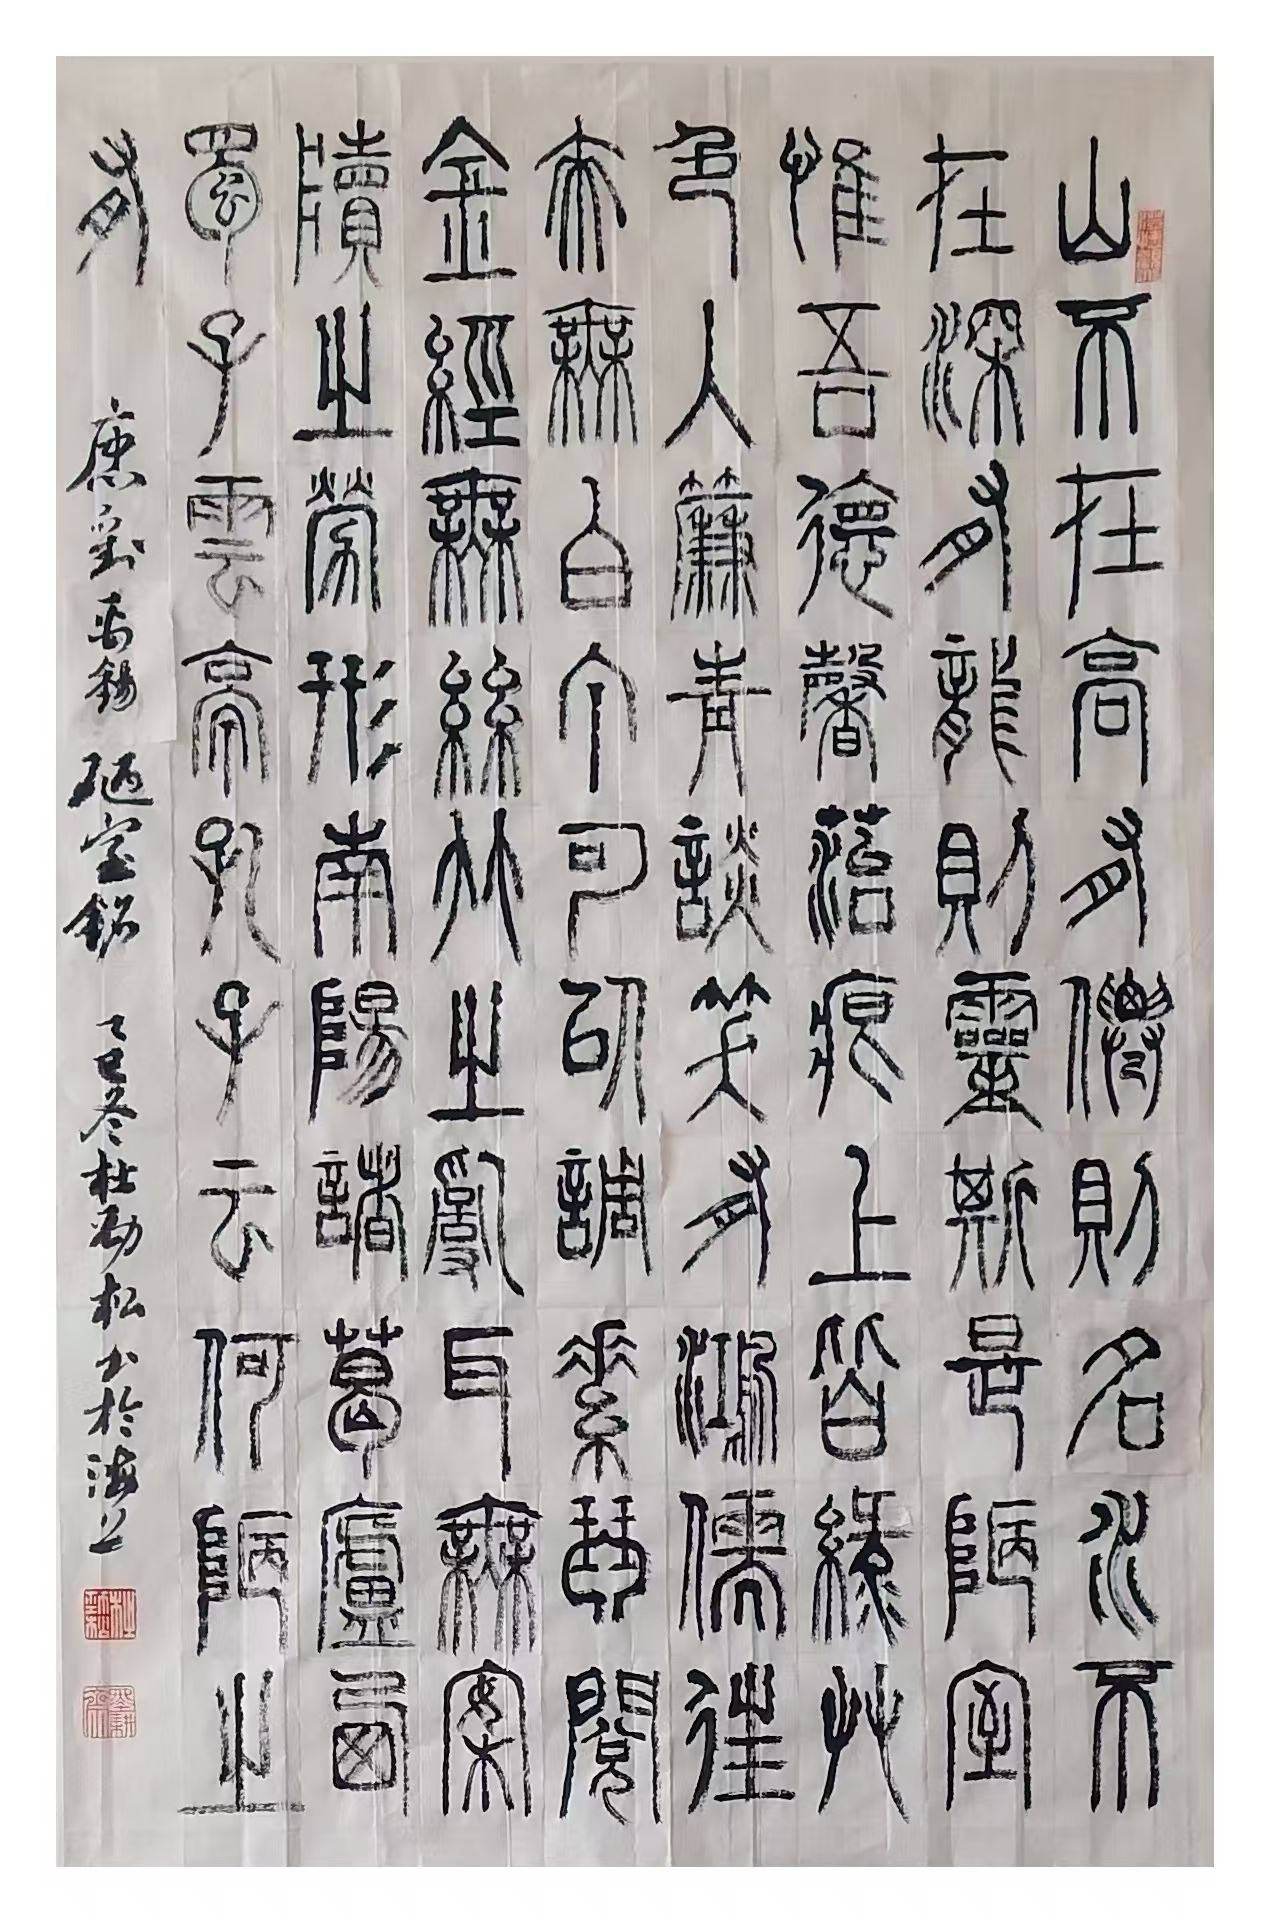 山不在高有僊則名水不
在深有龍則靈斯是陋室
惟吾德馨菭痕上皆綠艸
色入簾青談笑有鴻儒往
來無白丁可以調素琴閱
金經無絲竹之亂耳無案
牘之勞形南陽諸葛廬西
蜀子雲亭孔子云何陋之
有
唐劉禹錫陋室銘 乙巳冬杜勁松书於海上